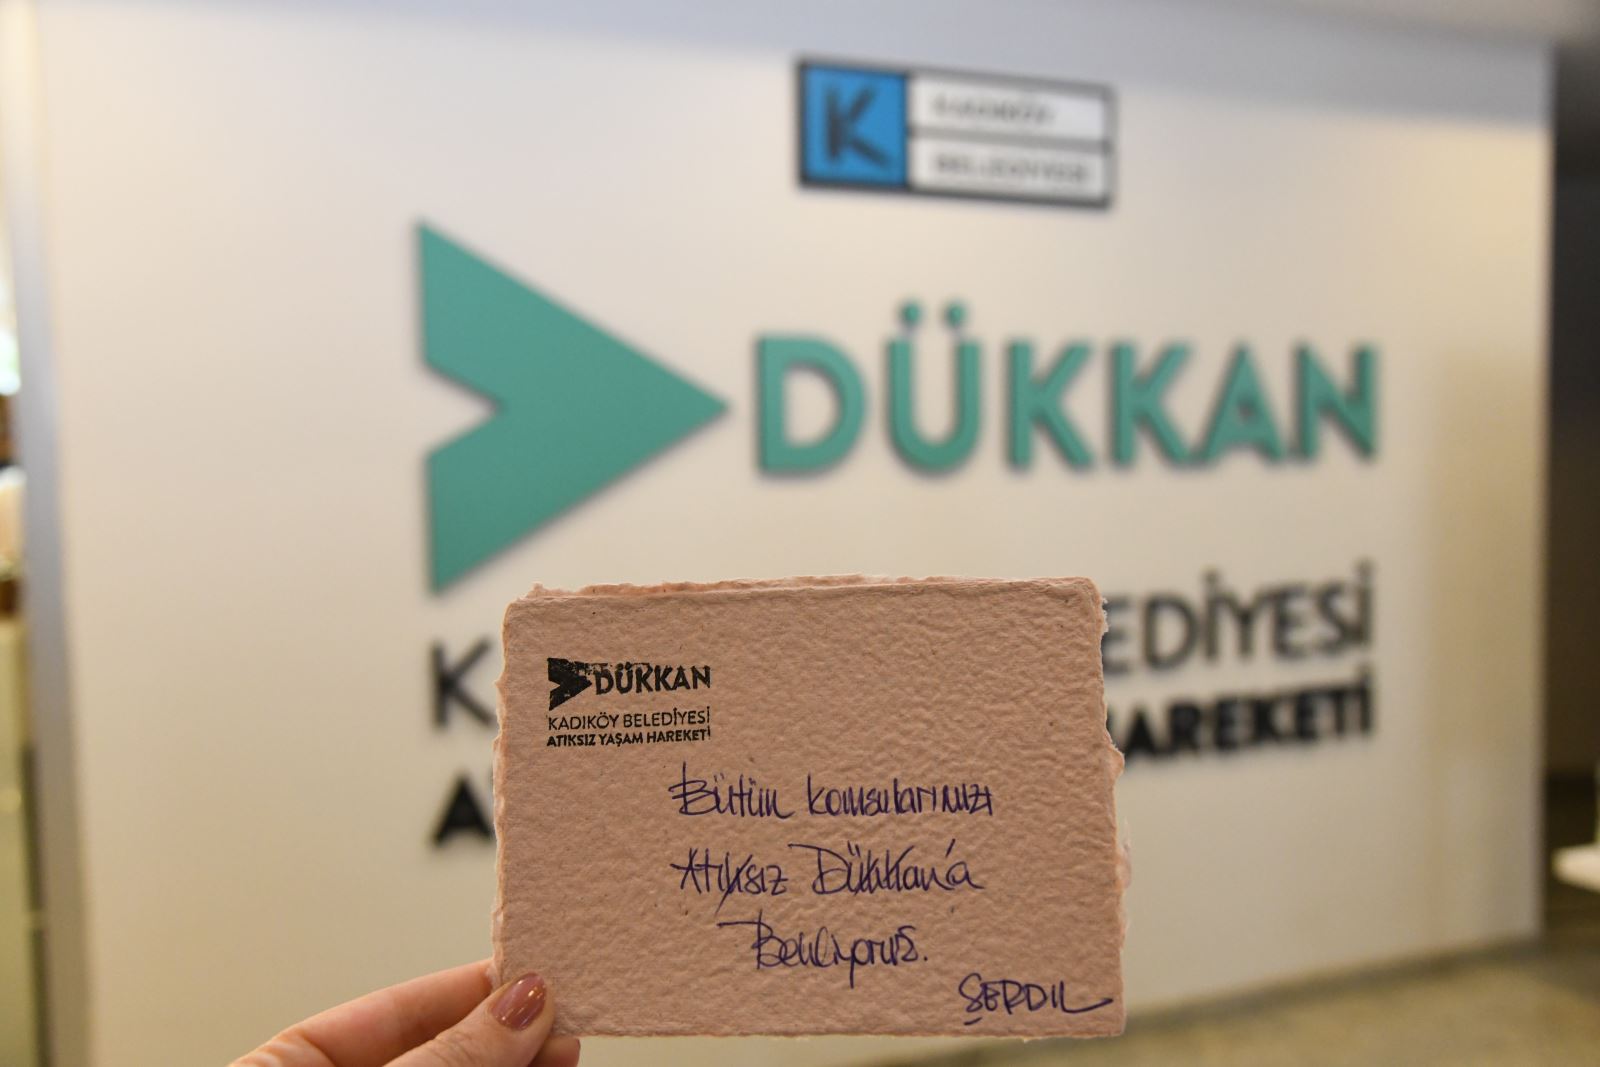 K
KADIKÖY
BELEDİYESİ
DÜKKAN
K EDİYESİ
A HAREKETİ
DÜKKAN
KADIKÖY BELEDİYESİ
ATIKSIZ YAŞAM HAREKETİ
Bütün komsularımızı
Atıksız Dükkan'a
Bekliyoruz.
ŞERDIL